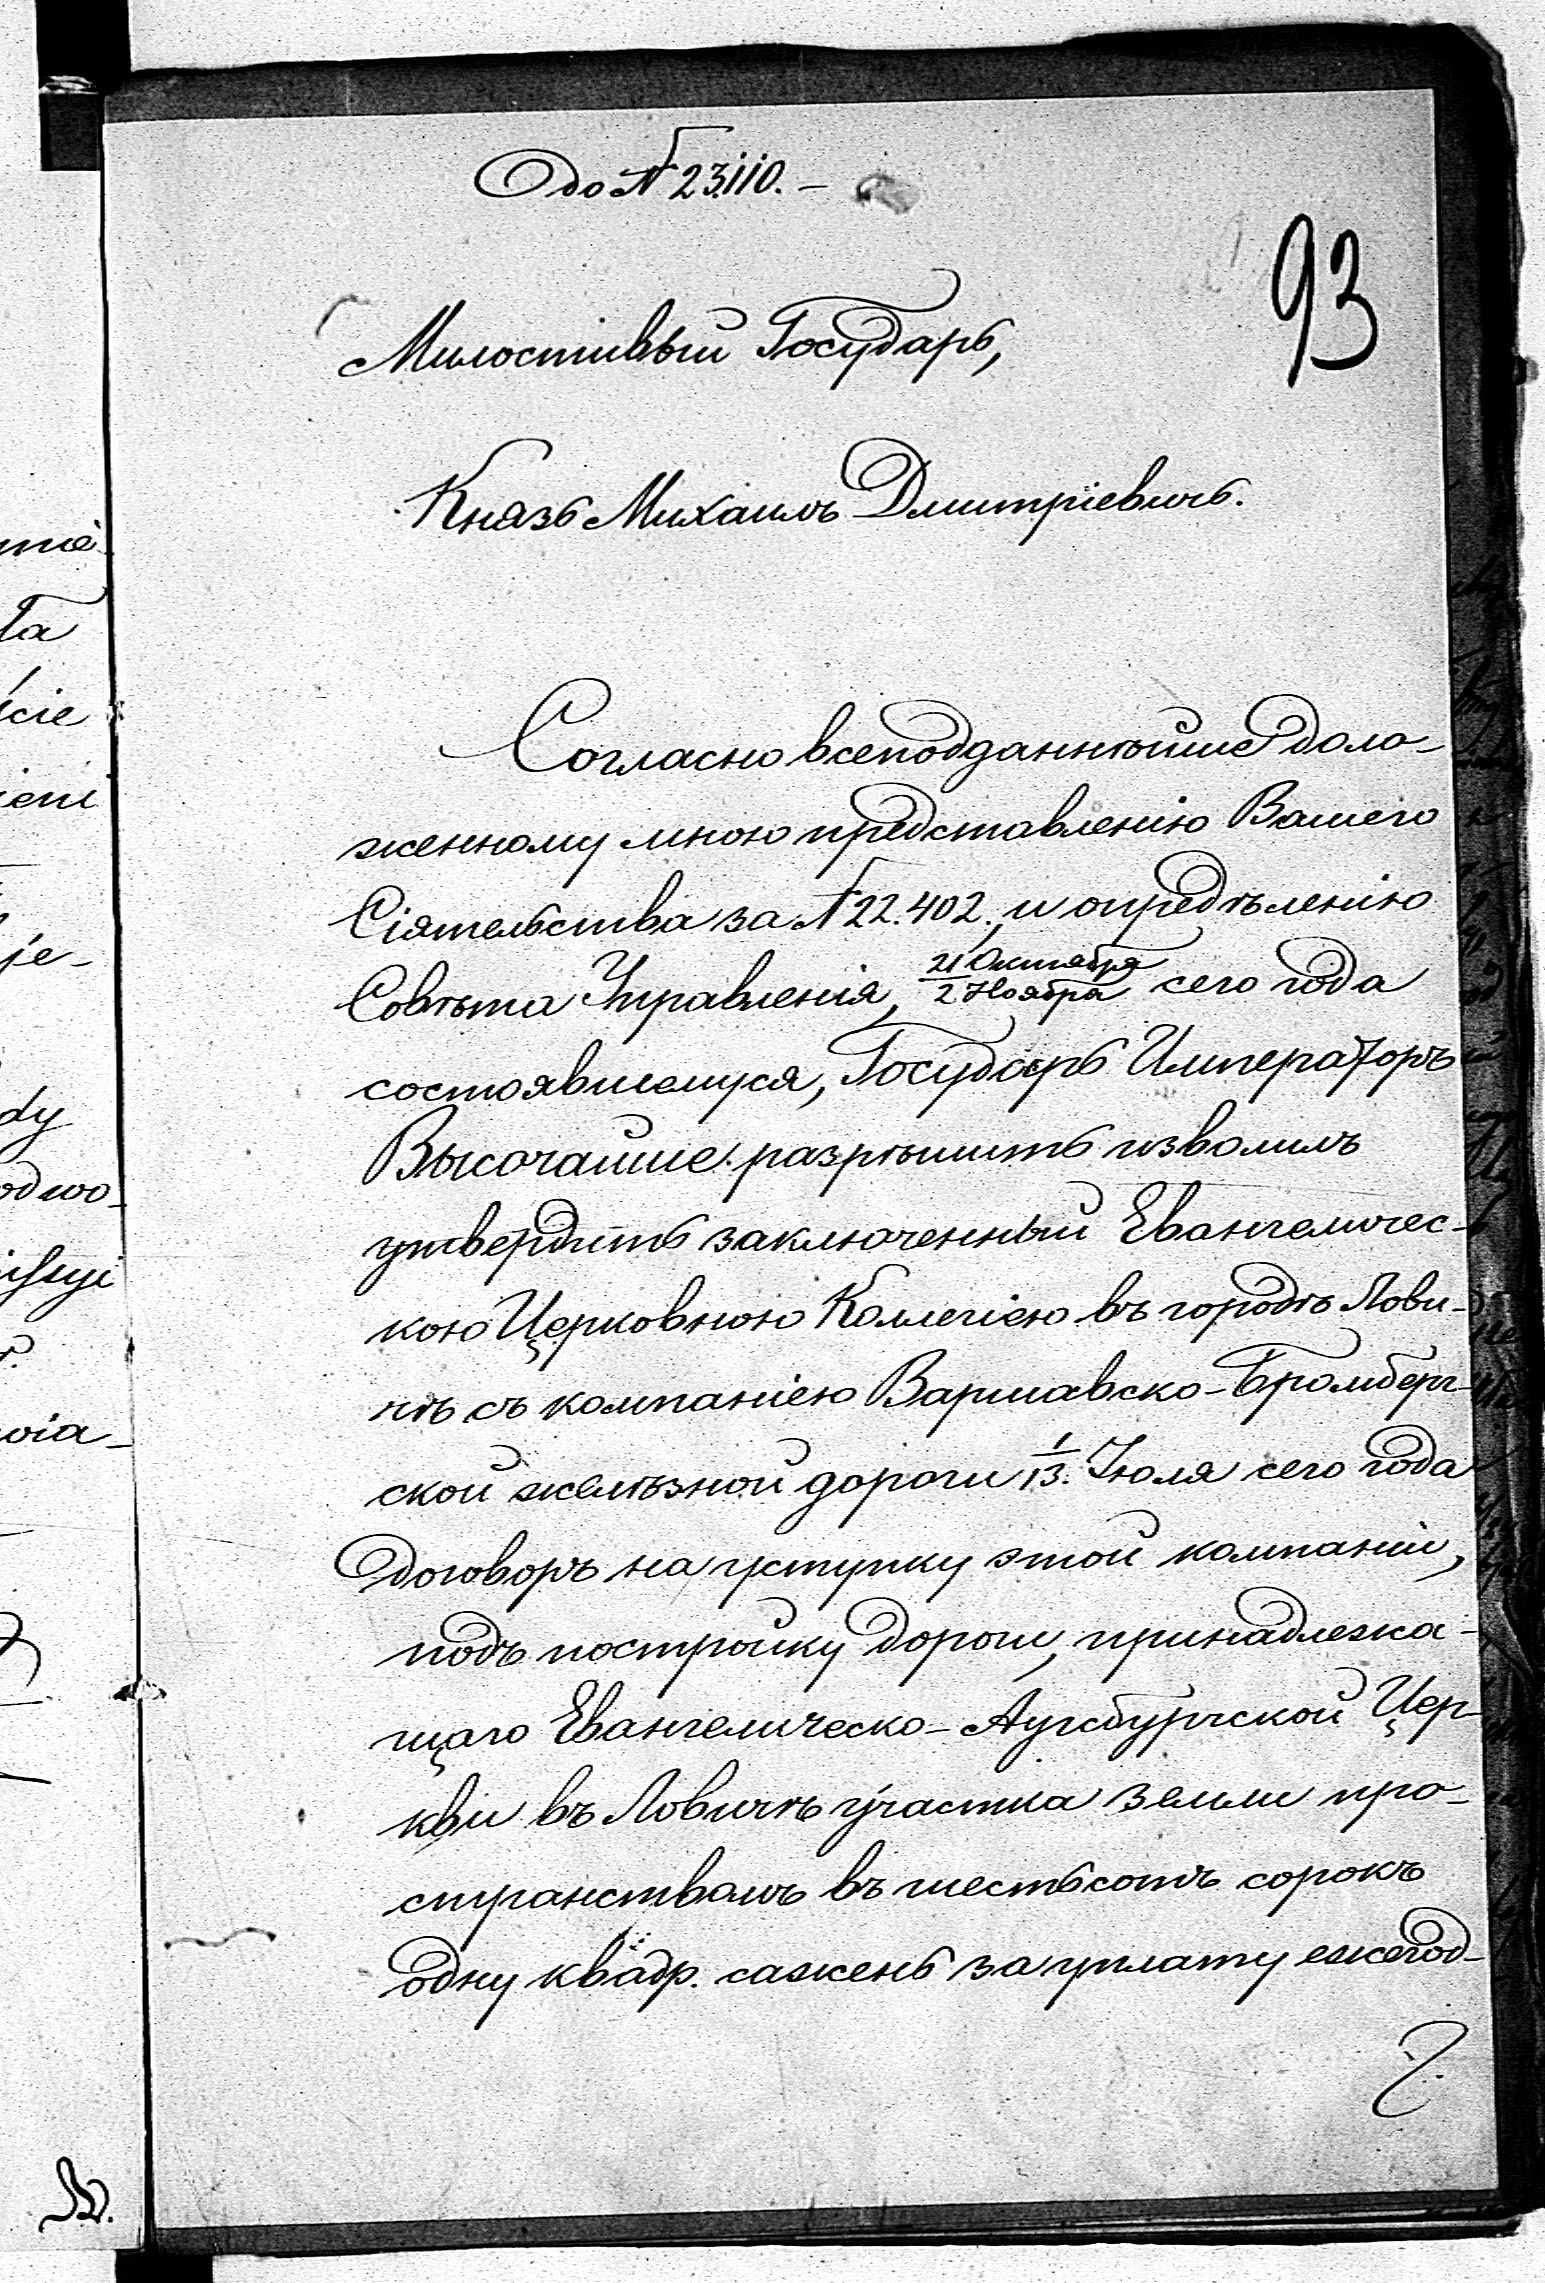 до № 23.110. —
93
Милостивый Государь,
Князь Михаилъ Дмитріевичъ.
Согласно всеподданнѣйше доло-
женному мною представленію Вашего
Сіятельства за № 22.402, и опредѣленію
Совѣта Управленія, 21 Октября / 2 Ноября сего года
состоявшемуся, Государь Императоръ
Высочайше разрѣшить изволилъ
утвердить заключенный Евангеличес-
кою Церковною Коллегіею въ городѣ Лови-
чѣ съ компаніею Варшавско-Бромберг-
ской желѣзной дороги 1/13. Іюля сего года
договоръ на уступку этой компаніи,
подъ постройку дороги, принадлежа-
щаго Евангелическо-Аугсбургской Цер-
кви въ Ловичѣ участка земли про-
странствомъ въ шестьсотъ сорокъ
одну квадр. сажень за уплату ежегод-
mie
ła
ście
ieni
je-
dy
odwo-
issyi
wia-